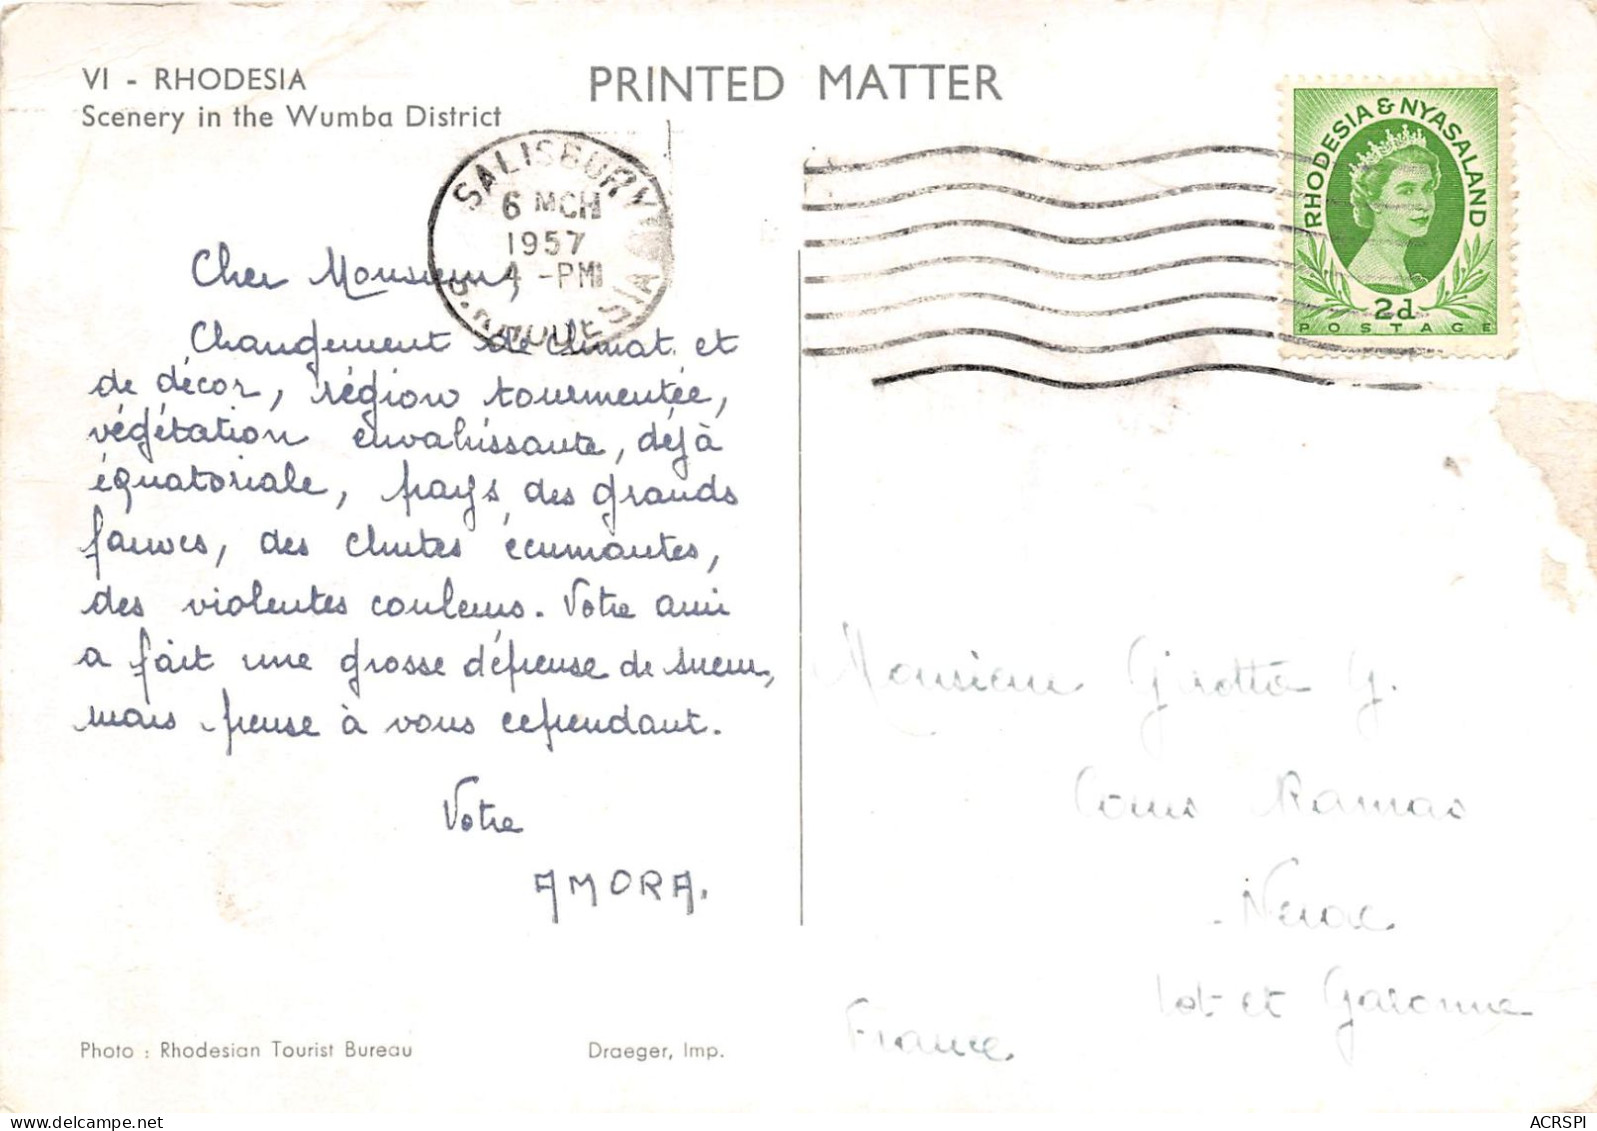 VI - RHODESIA
Scenery in the Wumba District
PRINTED MATTER
SALISBURY
6 MCH
1957
4 -PM
S. RHODESIA
RHODESIA & NYASALAND
2d
POSTAGE
Cher Monsieur,
Changement de climat et
de décor, région tourmentée,
végétation envahissante, déjà
équatoriale, pays des grands
fauves, des chutes écumantes,
des violentes couleurs. Votre ami
a fait une grosse dépense de sueur,
mais pense à vous cependant.
Votre
AMORA.
Monsieur G.
Cours
Nerac
Lot-et Garonne
France
Photo : Rhodesian Tourist Bureau
Draeger, Imp.
ACRSPI